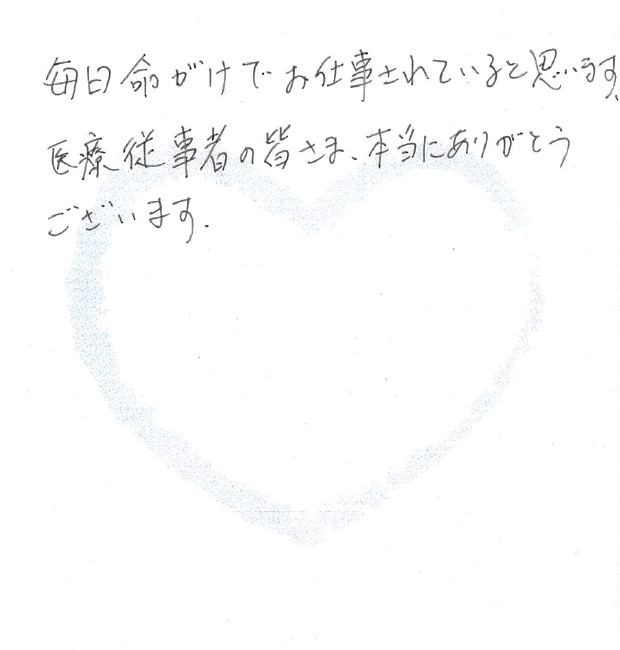 毎日命がけでお仕事されていると思います.
医療従事者の皆さま、本当にありがとう
ございます.